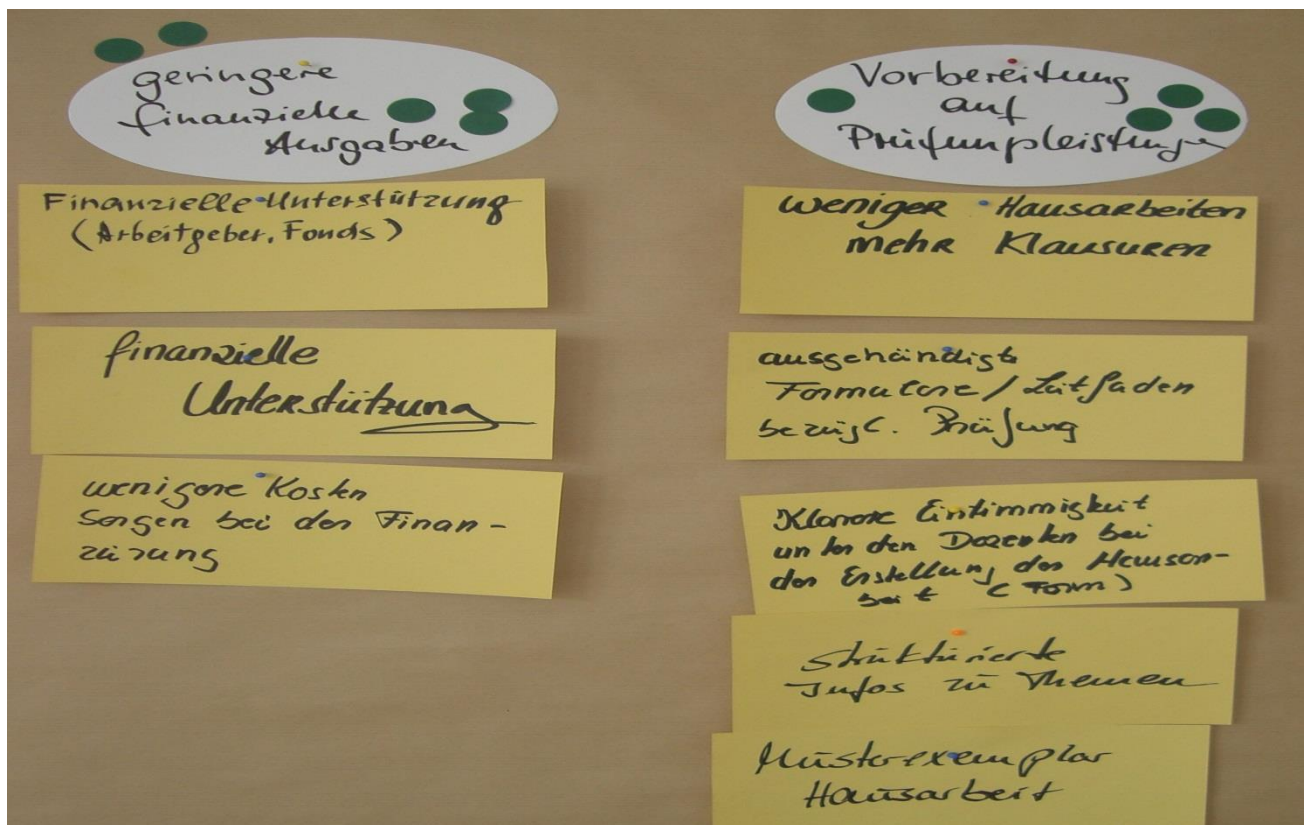 geringere
finanzielle
Ausgaben
Finanzielle Unterstützung
(Arbeitgeber, Fonds)
finanzielle
Unterstützung
wenigere Kosten
Sorgen bei der Finan-
zierung
Vorbereitung
auf
Prüfungsleistungen
weniger Hausarbeiten
mehr Klausuren
ausgehändigte
Formulare / Leitfaden
bezügl. Prüfung
Klarere Eintimmigkeit
unter den Dozenten bei
der Erstellung der Hausar-
beit (Form)
strukturierte
Infos zu Themen
Musterexemplar
Hausarbeit